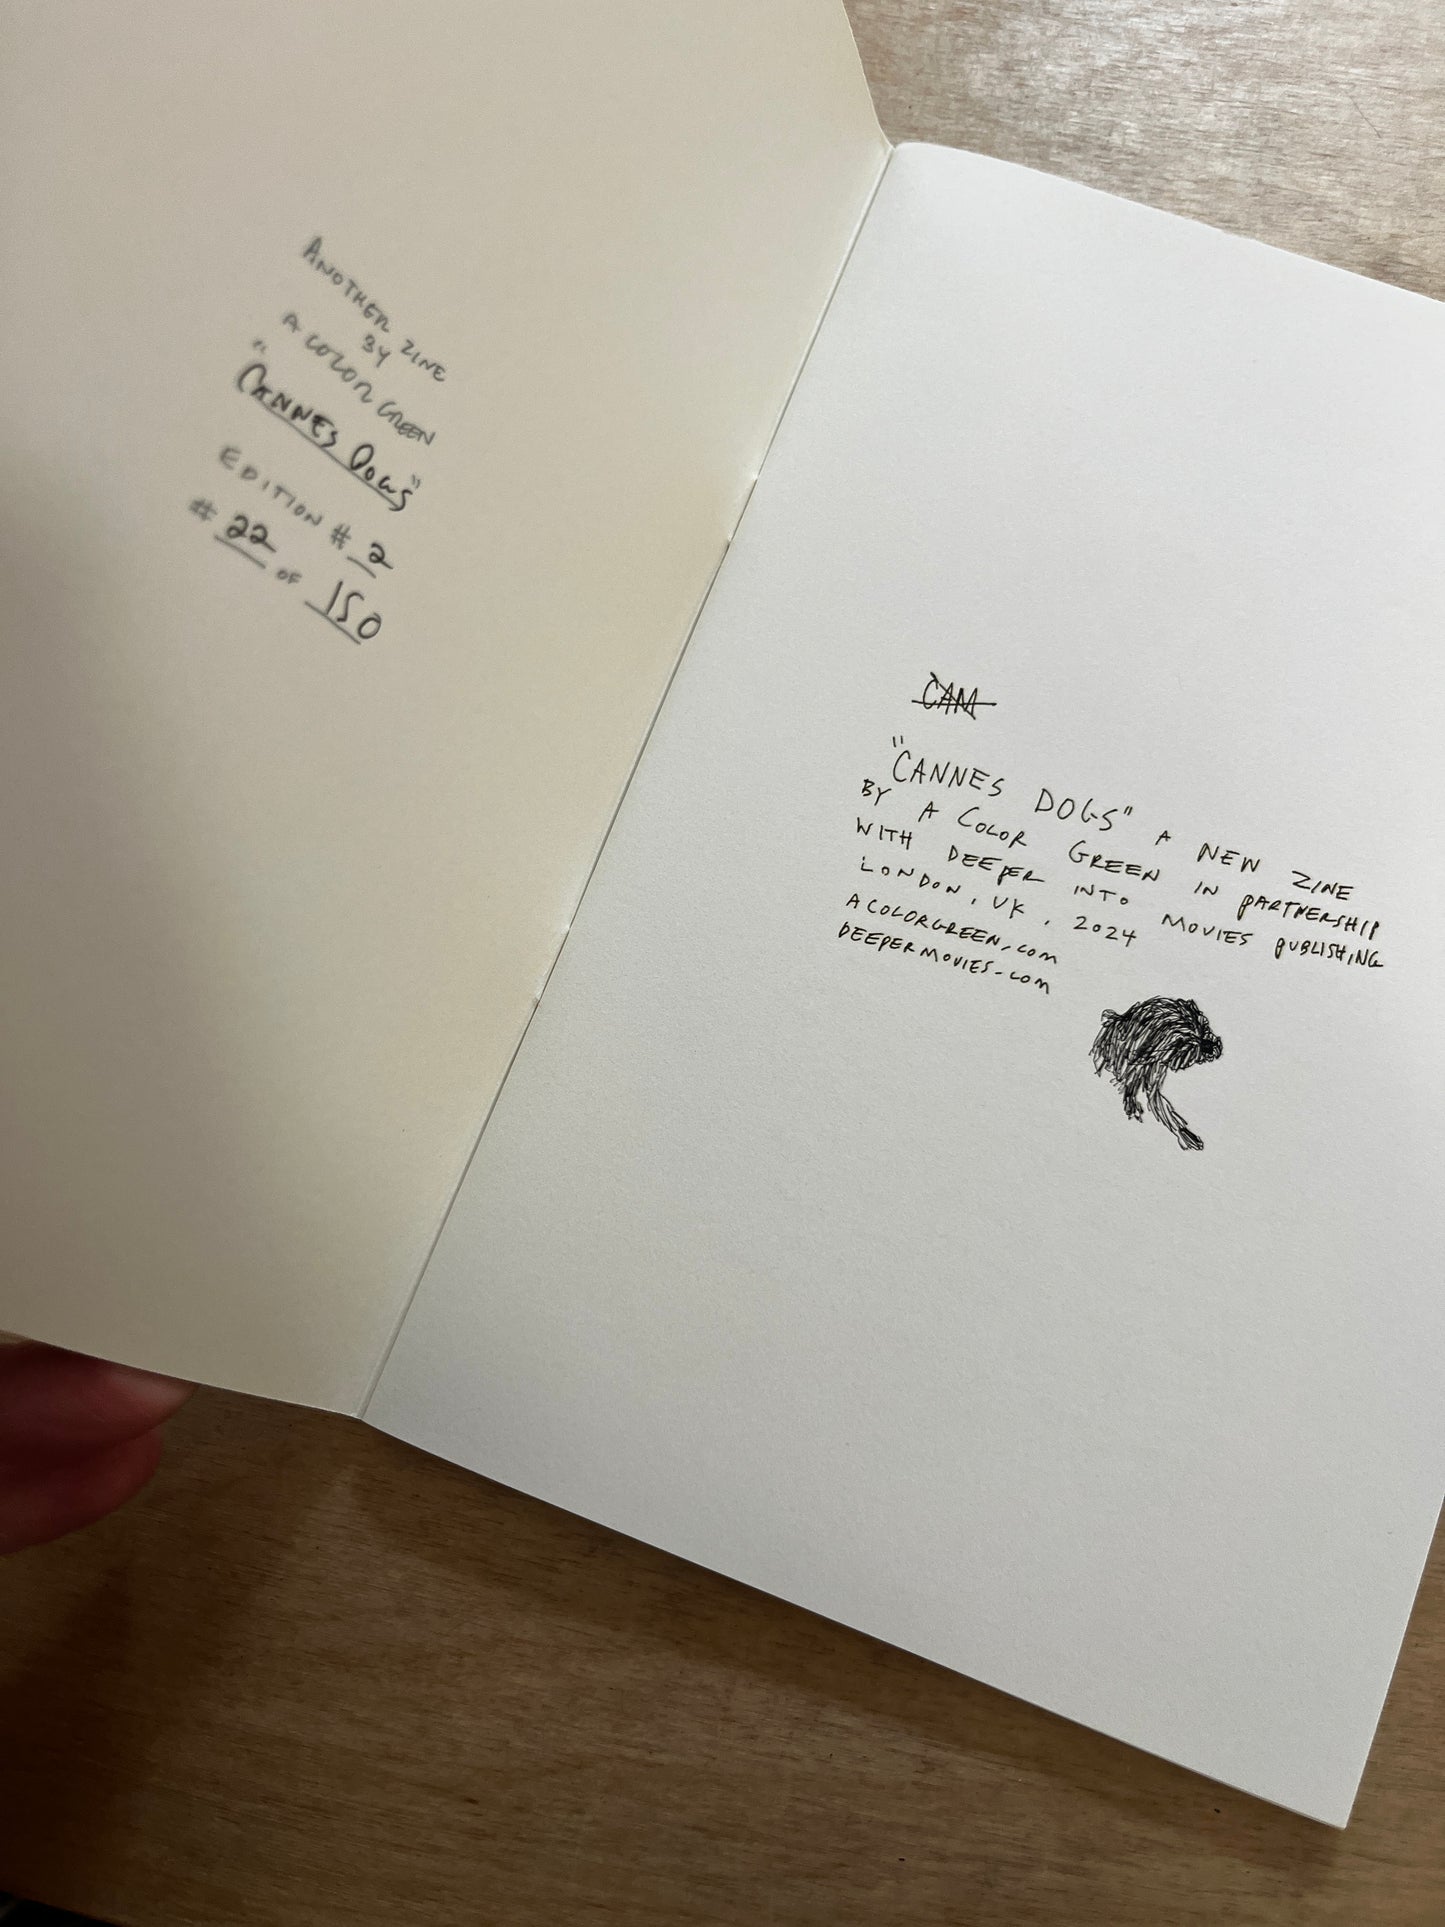 ANOTHER ZINE
BY
A COLOR GREEN
"CANNES DOGS"
EDITION # 2
# 22 OF 150
CAM
"CANNES DOGS" A NEW ZINE
BY A COLOR GREEN IN PARTNERSHIP
WITH DEEPER INTO MOVIES PUBLISHING
LONDON, UK, 2024
ACOLORGREEN.COM
DEEPERMOVIES.COM